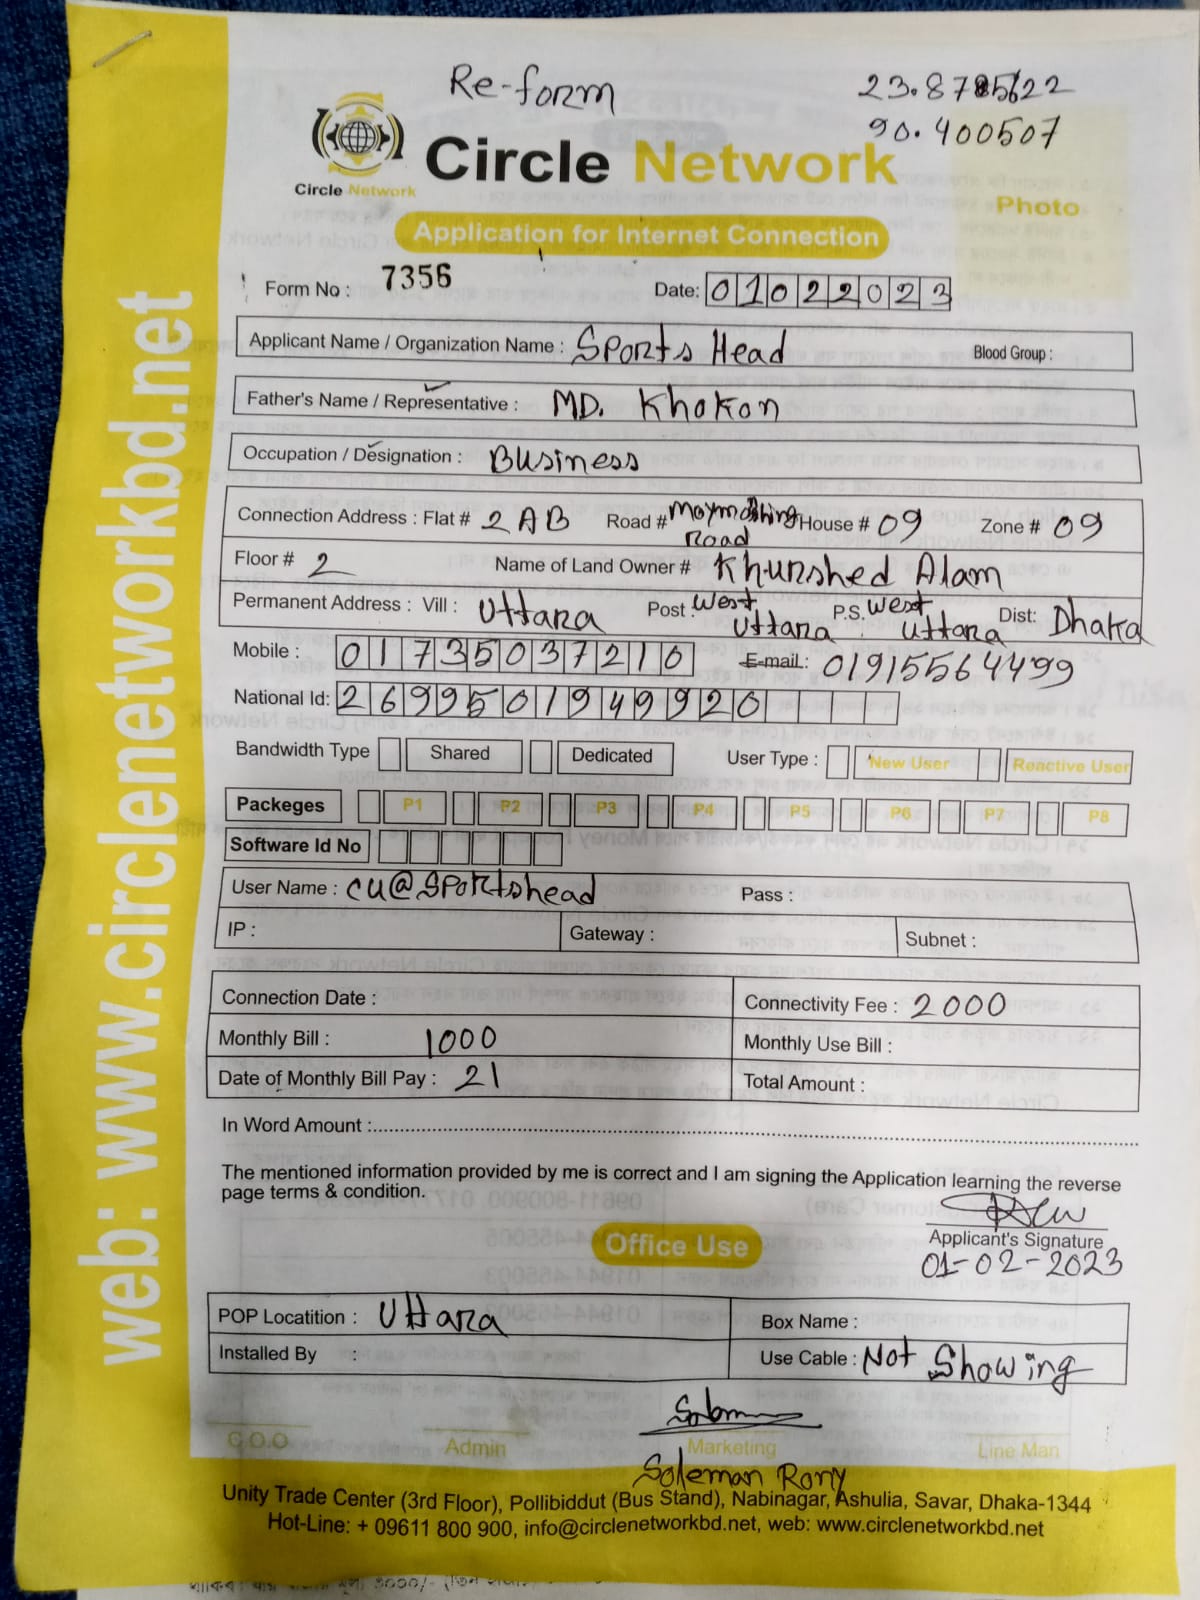 Re-form
90.400507
Circle Network
Circle Network
Photo
Application for Internet Connection
Form No : 7356 Date: 01022023
Applicant Name / Organization Name : Sports Head Blood Group :
Father's Name / Representative : MD. Khokon
Occupation / Designation : Business
Connection Address : Flat # 2AB Road # Road House # 09 Zone # 09
Floor # 2 Name of Land Owner # Khurshed Alam
Permanent Address : Vill : Uttara Post : West Uttara P.S. West Uttara Dist: Dhaka
Mobile : 01735037210 E-mail : 01915564499
National Id: 2699501949920
Bandwidth Type Shared Dedicated User Type : New User Reactive User
Packeges P1 P2 P3 P4 P5 P6 P7 P8
Software Id No
User Name : cu@sportshead Pass :
IP : Gateway : Subnet :
Connection Date : Connectivity Fee : 2000
Monthly Bill : 1000 Monthly Use Bill :
Date of Monthly Bill Pay : 21 Total Amount :
In Word Amount :
The mentioned information provided by me is correct and I am signing the Application learning the reverse
page terms & condition.
Applicant's Signature
01-02-2023
Office Use
POP Locatition : Uttara Box Name :
Installed By : Use Cable : Not Showing
C.O.O Admin Marketing Line Man
Soleman Rony
Unity Trade Center (3rd Floor), Pollibiddut (Bus Stand), Nabinagar, Ashulia, Savar, Dhaka-1344
Hot-Line: + 09611 800 900, info@circlenetworkbd.net, web: www.circlenetworkbd.net
web: www.circlenetworkbd.net